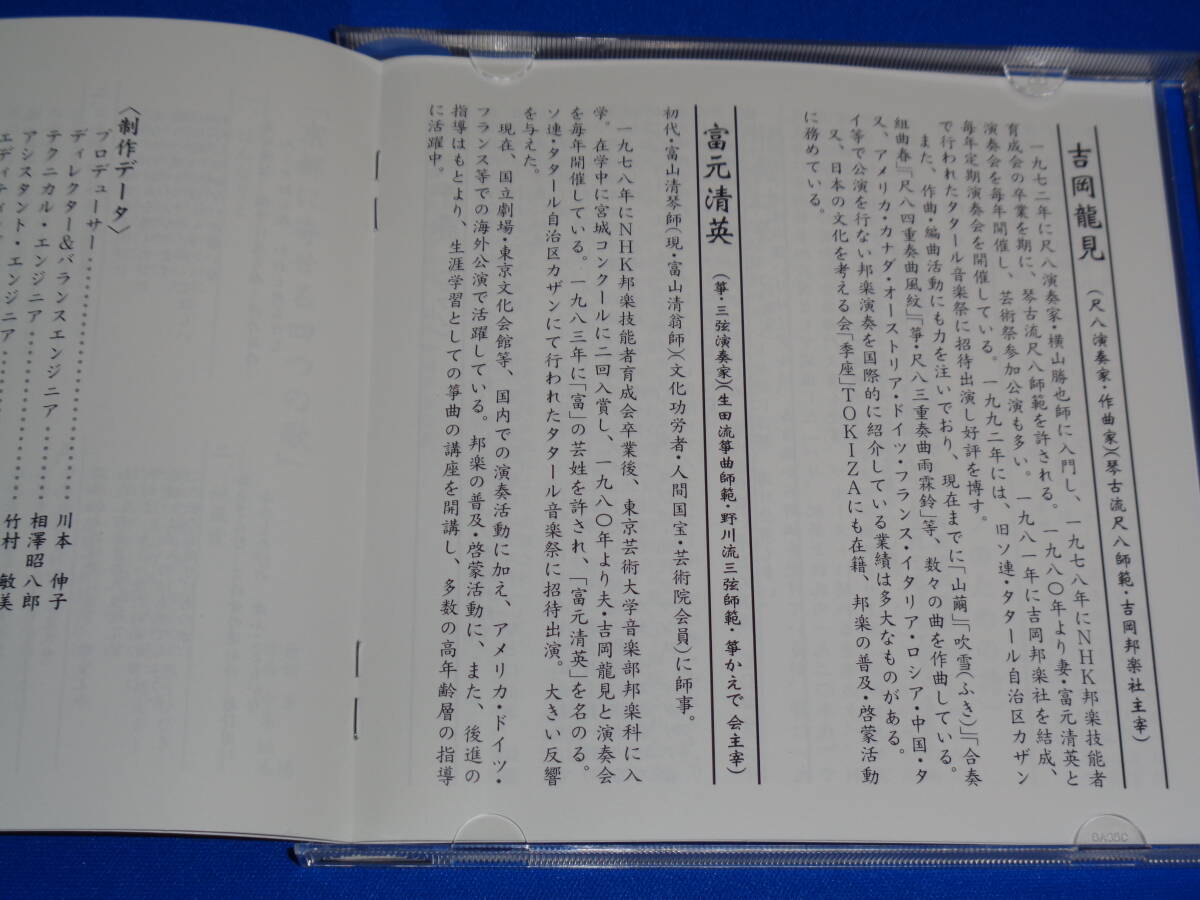 吉岡龍見 (尺八演奏家・作曲家)(琴古流尺八師範・吉岡邦楽社主宰)
一九七二年に尺八演奏家・横山勝也師に入門し、一九七八年にNHK邦楽技能者
育成会の卒業を期に、琴古流尺八師範を許される。一九八〇年より妻・富元清英と
演奏会を毎年開催し、芸術祭参加公演も多い。一九八一年に吉岡邦楽社を結成、
毎年定期演奏会を開催している。一九九二年には、旧ソ連・タタール自治区カザン
で行われたタタール音楽祭に招待出演し好評を博す。
また、作曲・編曲活動にも力を注いでおり、現在までに「山繭」「吹雪(ふき)」「合奏
組曲春」『尺八4重奏曲風紋』『箏・尺八三重奏曲雨霖鈴」等、数々の曲を作曲している。
又、アメリカ・カナダ・オーストリア・ドイツ・フランス・イタリア・ロシア・中国・タ
イ等で公演を行ない邦楽演奏を国際的に紹介している業績は多大なものがある。
又、日本の文化を考える会「季座」TOKIZAにも在籍、邦楽の普及・啓蒙活動
に務めている。
富元清英 (箏・三弦演奏家)(生田流箏曲師範・野川流三弦師範・箏かえで会主宰)
初代・富山清琴師(現・富山清翁師)(文化功労者・人間国宝・芸術院会員)に師事。
一九七八年にNHK邦楽技能者育成会卒業後、東京芸術大学音楽部邦楽科に入
学。在学中に宮城コンクールに二回入賞し、一九八〇年より夫・吉岡龍見と演奏会
を毎年開催している。一九八三年に「富」の芸姓を許され、「富元清英」を名のる。
ソ連・タタール自治区カザンにて行われたタタール音楽祭に招待出演。大きい反響
を与えた。
現在、国立劇場・東京文化会館等、国内での演奏活動に加え、アメリカ・ドイツ・
フランス等での海外公演で活躍している。邦楽の普及・啓蒙活動に、また、後進の
指導はもとより、生涯学習としての箏曲の講座を開講し、多数の高年齢層の指導
に活躍中。
〈制作データ〉
プロデューサー
ディレクター&バランスエンジニア 川本 伸子
テクニカル・エンジニア 相澤昭八郎
アシスタント・エンジニア 竹村 敏美